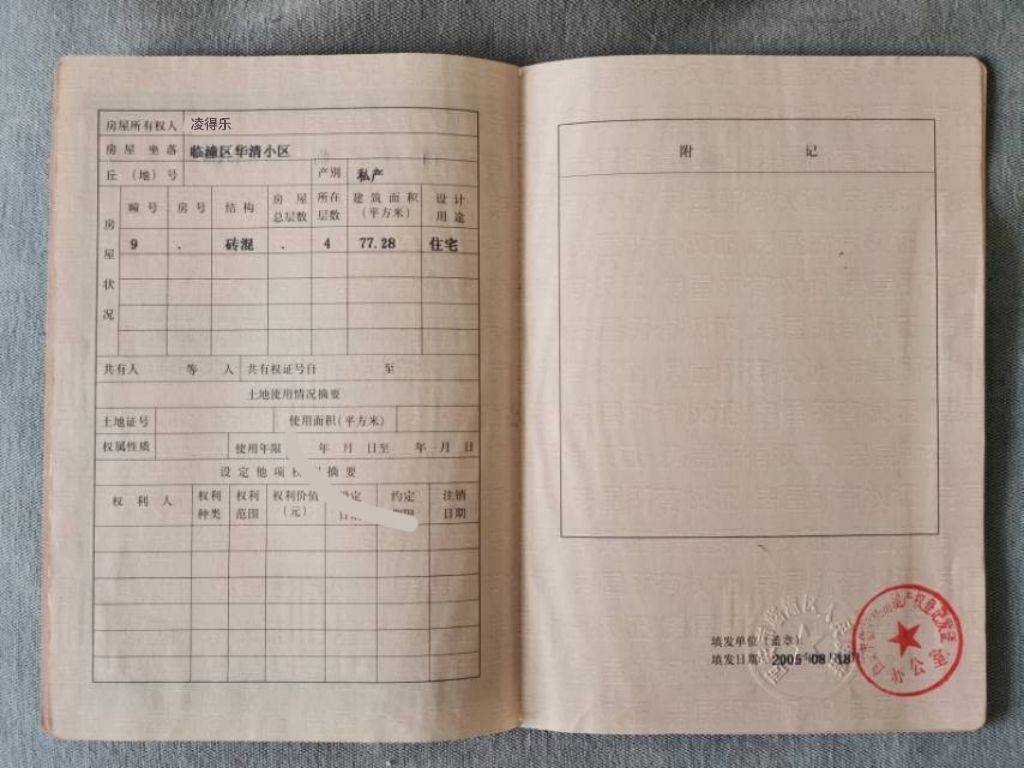 房屋所有权人 凌得乐
房屋坐落 临潼区华清小区
丘（地）号 产别 私产
房屋状况
幢号 房号 结构 房屋总层数 所在层数 建筑面积（平方米） 设计用途
9 . 砖混 . 4 77.28 住宅
共有人 等 人 共有权证号自 至
土地使用情况摘要
土地证号 使用面积(平方米)
权属性质 使用年限 年 月 日至 年 月 日
设定他项 摘要
权利人 权利种类 权利范围 权利价值（元） 约定 注销日期
附 记
填发单位（盖章）
填发日期 2005年08月18日
产权登记发证
办公室